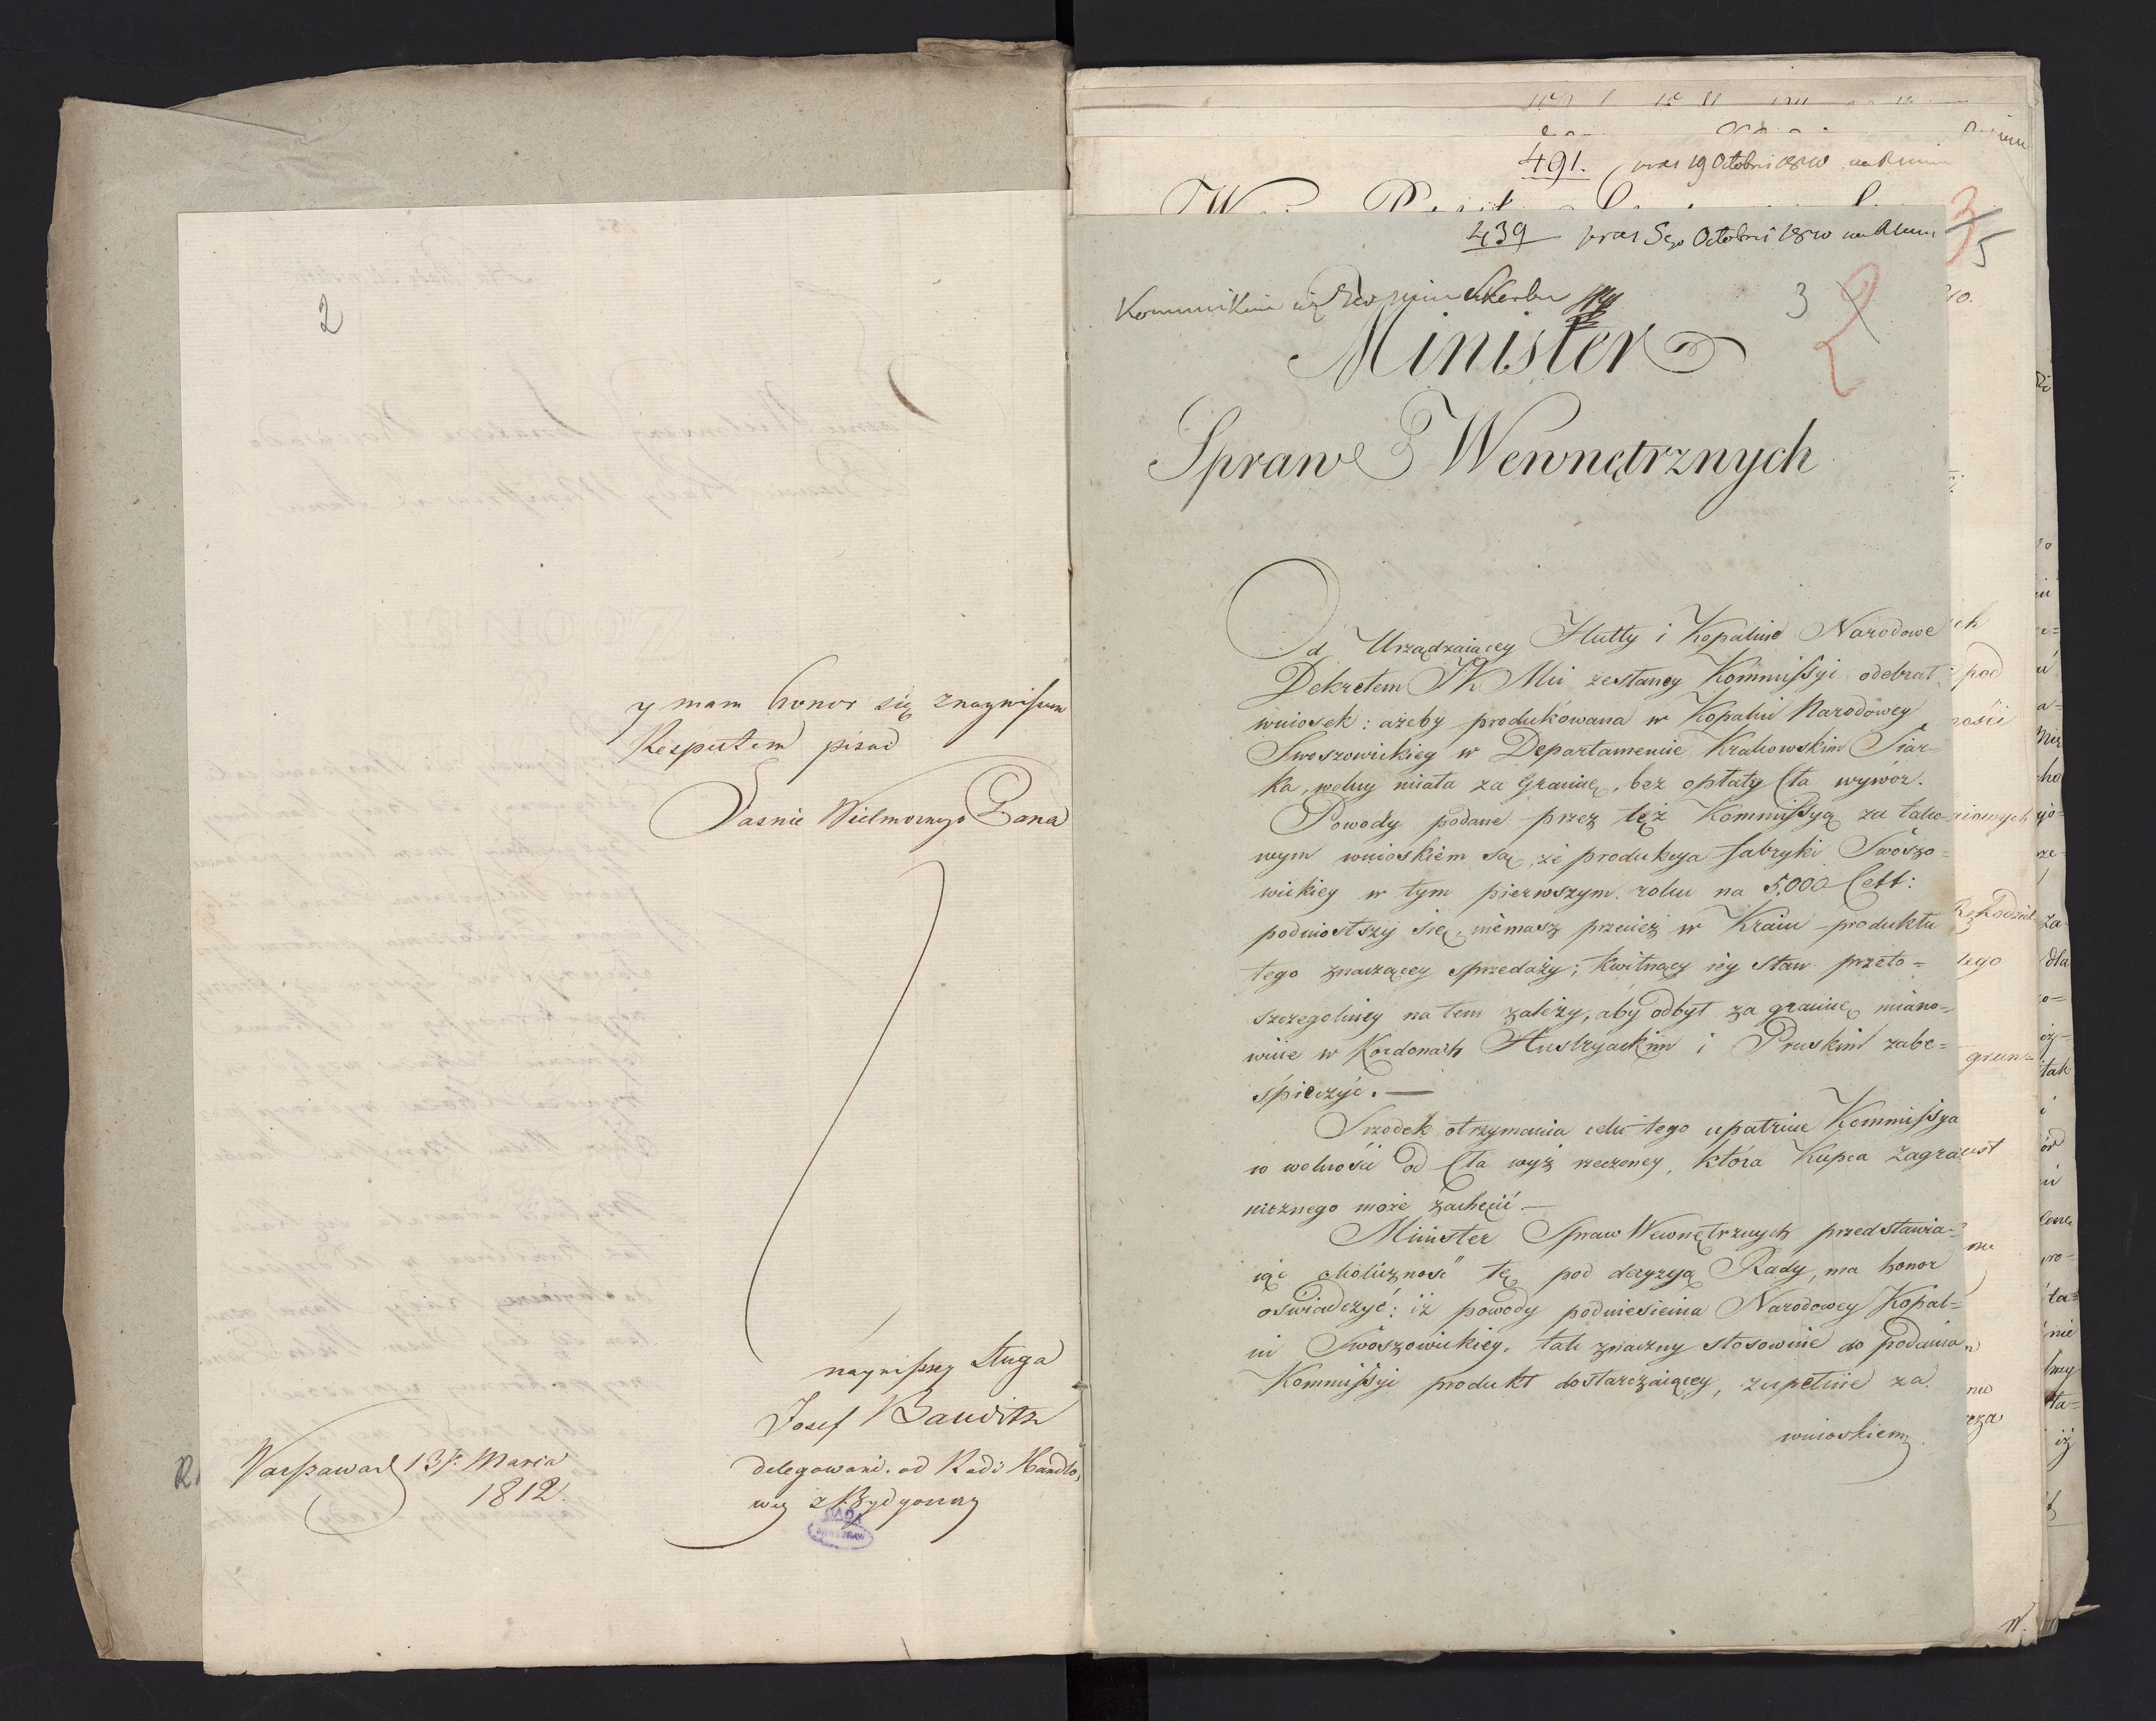 2
y mam honor się znaynißzem
Respectem pisać
Jasnie Wielmornego Pana
naynißzey Sługa
Josef Bauditz
delegowani. od Radi Handlo,
wey z Bydgoszczy
Warszawa d 13t Marca
1812.
491. pras 19 Octobris 1810
439 pras 5go Octobris 1810
3
5
3
2
Minister
Spraw Wewnętrznych
Od Urządzaiącey Hutty i Kopalnie Narodowe
Dekretem JK Mci zesłaney Kommißyi odebrał
wniosek: ażeby produkowana w Kopalni Narodowey
Swoszowickiey w Departamencie Krakowskim Siar-
ka, wolny miała za Granicę, bez opłaty Cła wywóz.
Powody podane przez tęż Kommißyą za tako-
wym wnioskiem są, że produkcya fabryki Swoszo=
wickiey w tym pierwszym roku na 5,000 Cett:
podniosłszy się, niemasz przeciez w Kraiu produktu
tego znaczącey sprzedaży; Kwitnący iey stan przeto=
szczegolniey na tem zależy, aby odbyt za granicę miano=
wicie w Kordonach Austryackim i Pruskim zabe=
śpieczyć. —
Srzodek otrzymania celu tego upatruie Kommißya
w wolności od Cła wyż rzeczoney, która Kupca zagra
nicznego może zachęcić —
Minister Spraw Wewnętrznych przedstawia-
iąc okoliczność tę pod decyzyą Rady, ma honor
oświadczyć: iż powody podniesienia Narodowey Kopal=
ni Swoszowickiey, tak znaczny stosownie do podania
Kommißyi produkt dostarczaiącey, zupełnie za
wnioskiem